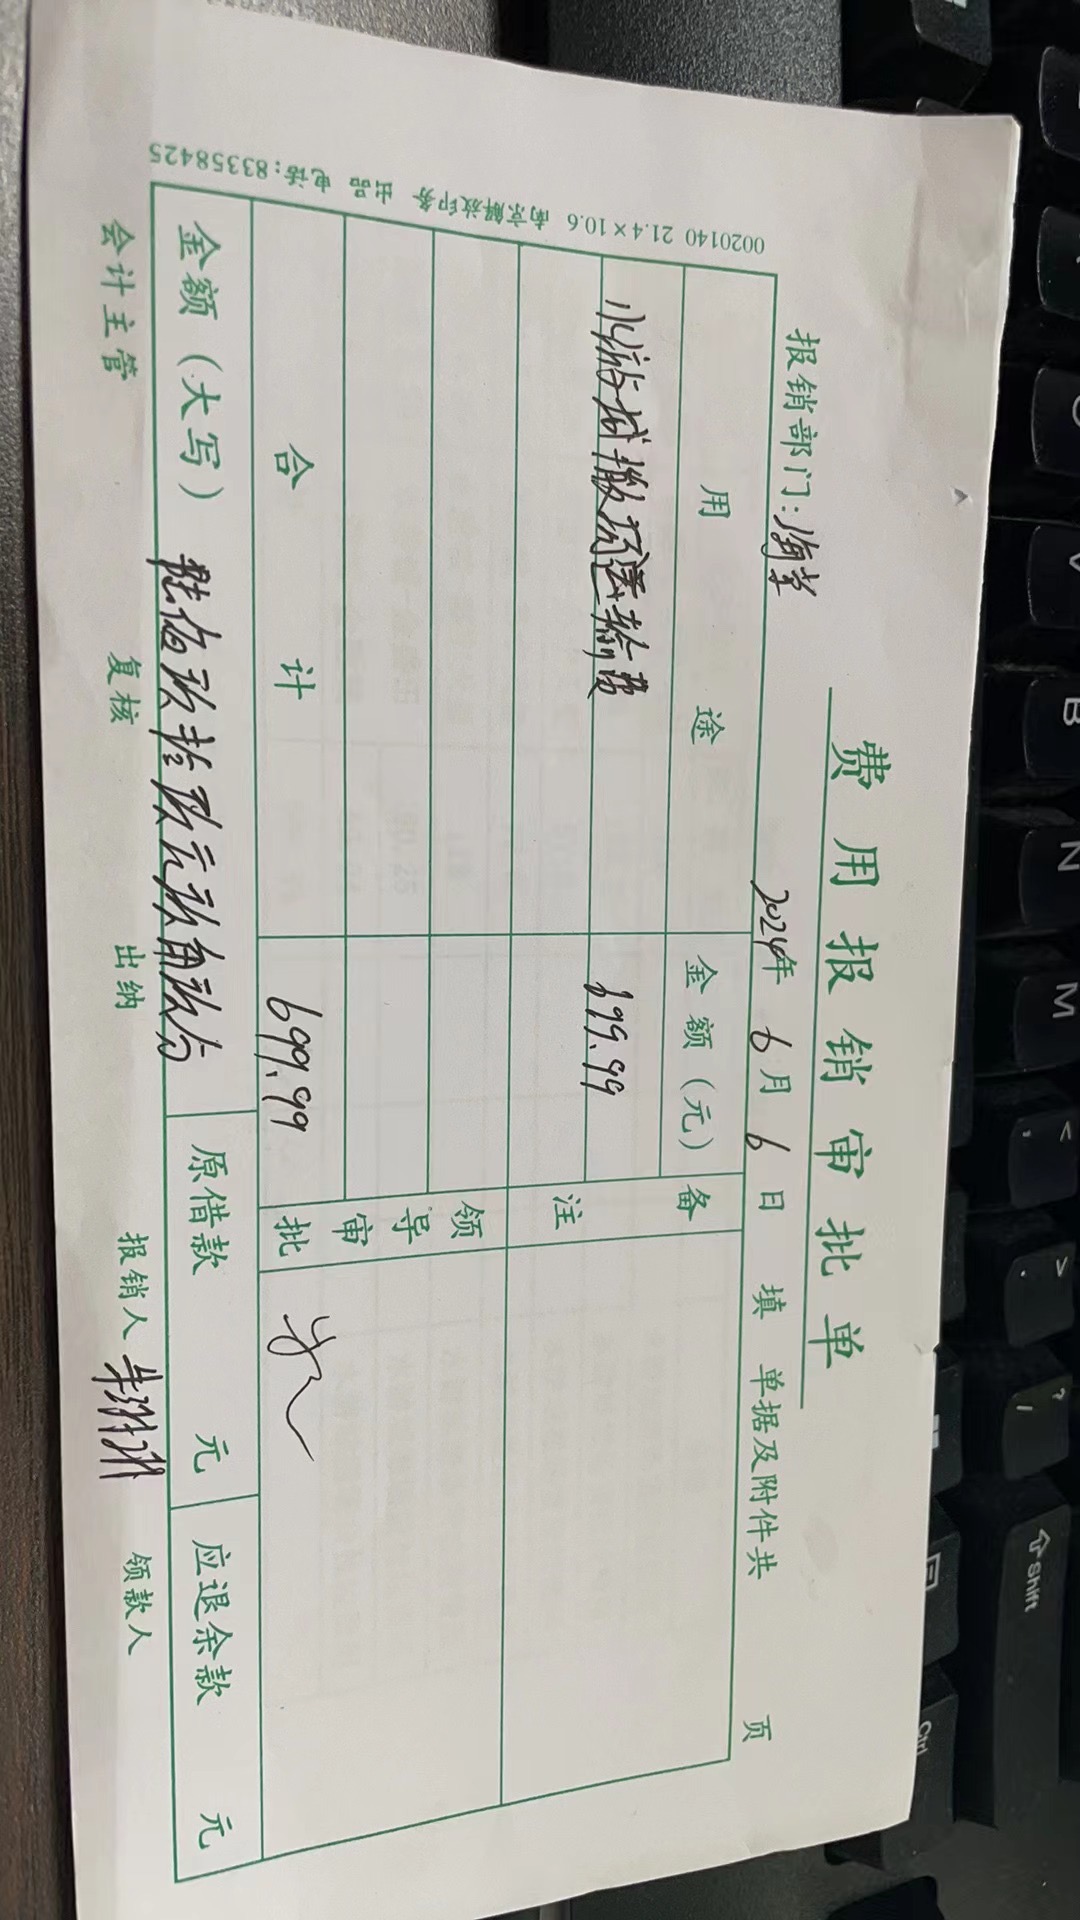 费用报销审批单
报销部门：海棠 2024年 6月 6日 填 单据及附件共 页
用途 金额（元） 备注
撤场运输费 699.99
合计 699.99 领导审批
金额（大写） 陆佰玖拾玖元玖角玖分 原借款 元 应退余款 元
会计主管 复核 出纳 报销人 领款人
0020140 21.4×10.6 南京解放印务 出品 电话：83358425
B
N
M
V
Shift
Ctrl